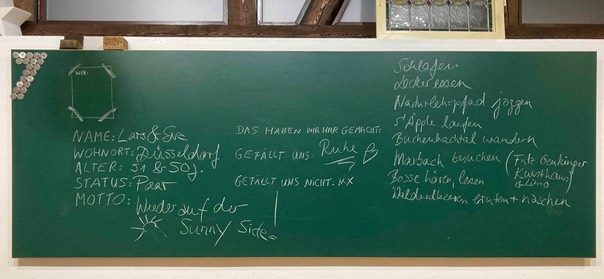 WIR:
NAME: Lars & Eva
WOHNORT: Düsseldorf
ALTER: 51 & 50 J.
STATUS: Paar
MOTTO: Wieder auf der
Sunny Side.
DAS HABEN WIR HIER GEMACHT:
GEFÄLLT UNS: Ruhe
GEFÄLLT UNS NICHT:
Schlafen
Lecker essen
Naturlehrpfad joggen
s'Äpple laufen
Buchenbachtal wandern
Marbach besuchen (
Kunsthaus
Bosse hören, lesen
Walderdbeeren + naschen